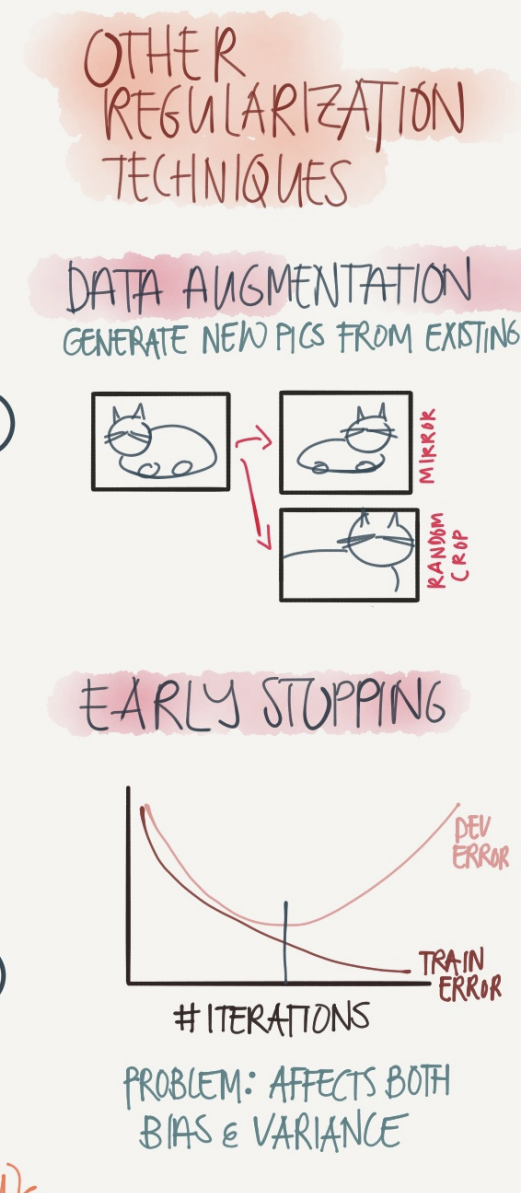 OTHER
REGULARIZATION
TECHNIQUES
DATA AUGMENTATION
GENERATE NEW PICS FROM EXISTING
MIRROR
RANDOM
CROP
EARLY STOPPING
DEV
ERROR
TRAIN
ERROR
# ITERATIONS
PROBLEM: AFFECTS BOTH
BIAS & VARIANCE